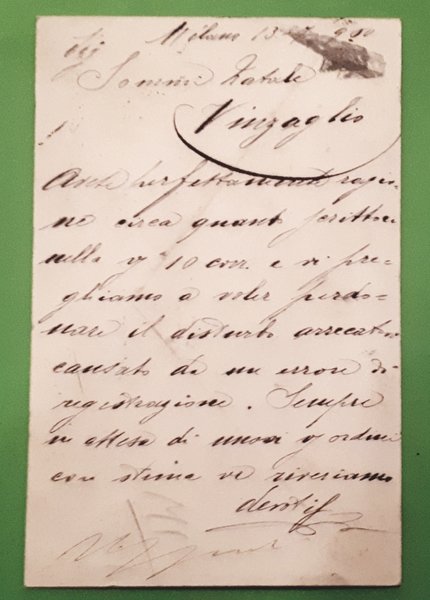 Milano 13
Sig
Sommi Natale
Vinzaglio
Avete perfettamente ragio-
ne circa quanto scrittoci
nella v/ 10 corr. e vi pre-
ghiamo a voler perdo-
nare il disturbo arrecatovi
causato da un errore di
registrazione. Sempre
in attesa di nuovi v/ ordini
con stima vi riveriamo
devot